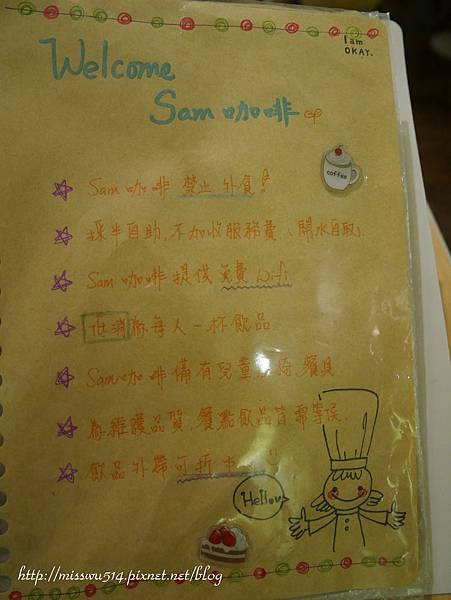 I am
OKAY.
Welcome
Sam 咖啡
coffee
Sam 咖啡 禁止 外食!
採半自助,不加收服務費、(開水自取)
Sam 咖啡 提供 免費 wifi
低消為每人一杯飲品
Sam 咖啡 備有兒童 椅、餐具
為維護品質,餐點飲品皆需等候
飲品外帶可折
Hello
http://misswu514.pixnet.net/blog